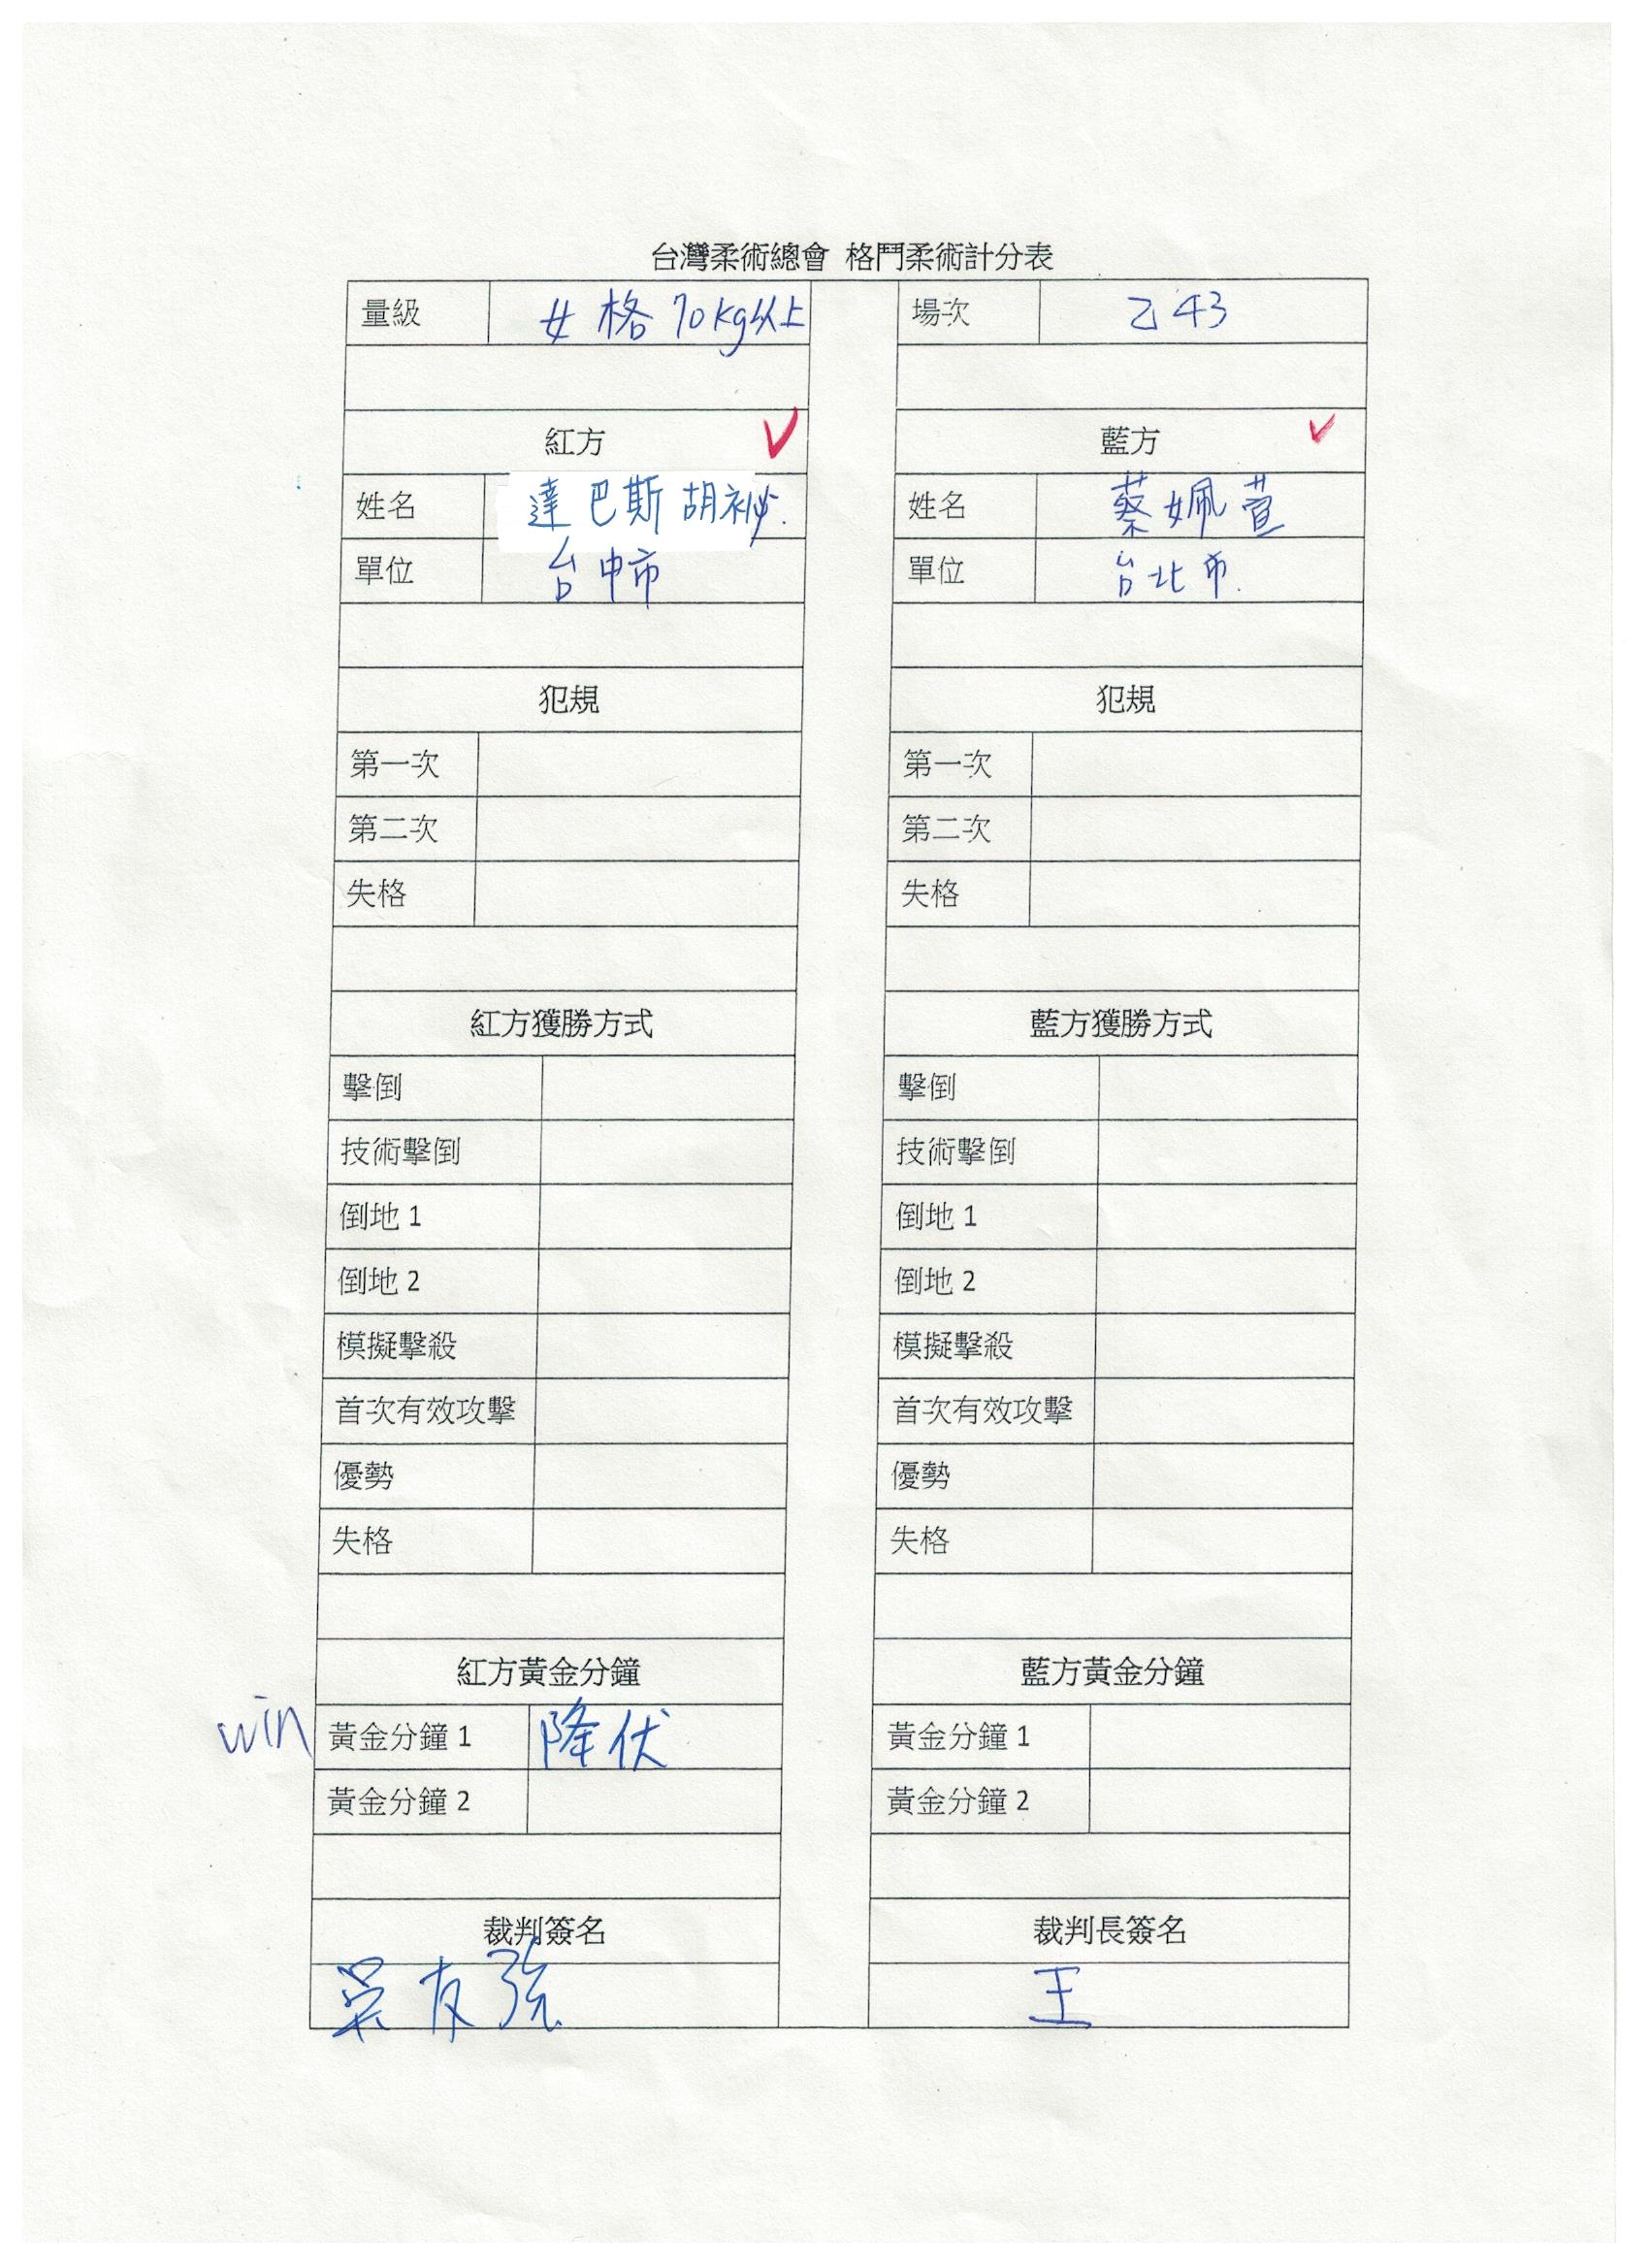 台灣柔術總會 格鬥柔術計分表
量級 女格70kg以上 場次 乙43
紅方 ✓ 藍方 ✓
姓名 達巴斯胡祕. 姓名 蔡姵萱
單位 台中市 單位 台北市.
犯規 犯規
第一次 第一次
第二次 第二次
失格 失格
紅方獲勝方式 藍方獲勝方式
擊倒 擊倒
技術擊倒 技術擊倒
倒地 1 倒地 1
倒地 2 倒地 2
模擬擊殺 模擬擊殺
首次有效攻擊 首次有效攻擊
優勢 優勢
失格 失格
紅方黃金分鐘 藍方黃金分鐘
win 黃金分鐘 1 降伏 黃金分鐘 1
黃金分鐘 2 黃金分鐘 2
裁判簽名 裁判長簽名
吳友強 王